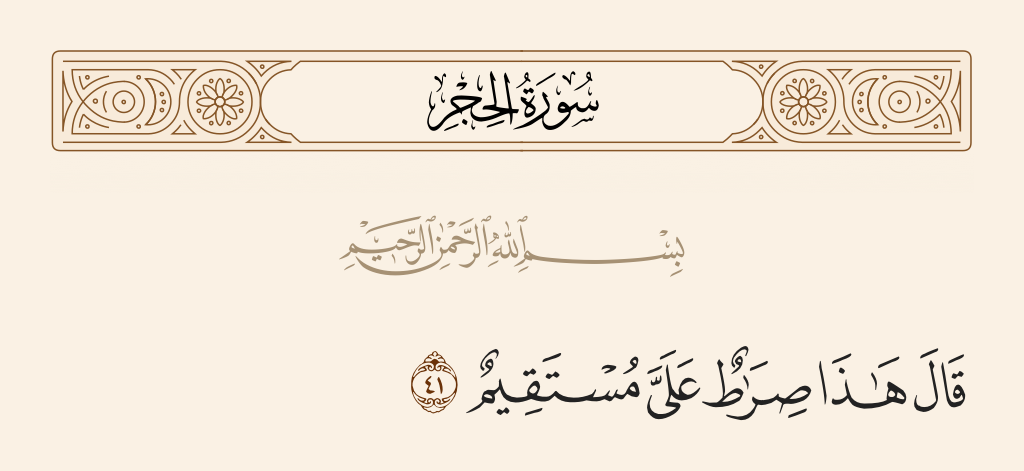 سُورَةُ الحِجْرِ
بِسْمِ ٱللَّهِ ٱلرَّحْمَٰنِ ٱلرَّحِيمِ
قَالَ هَـٰذَا صِرَٰطٌ عَلَىَّ مُسْتَقِيمٌ ٤١